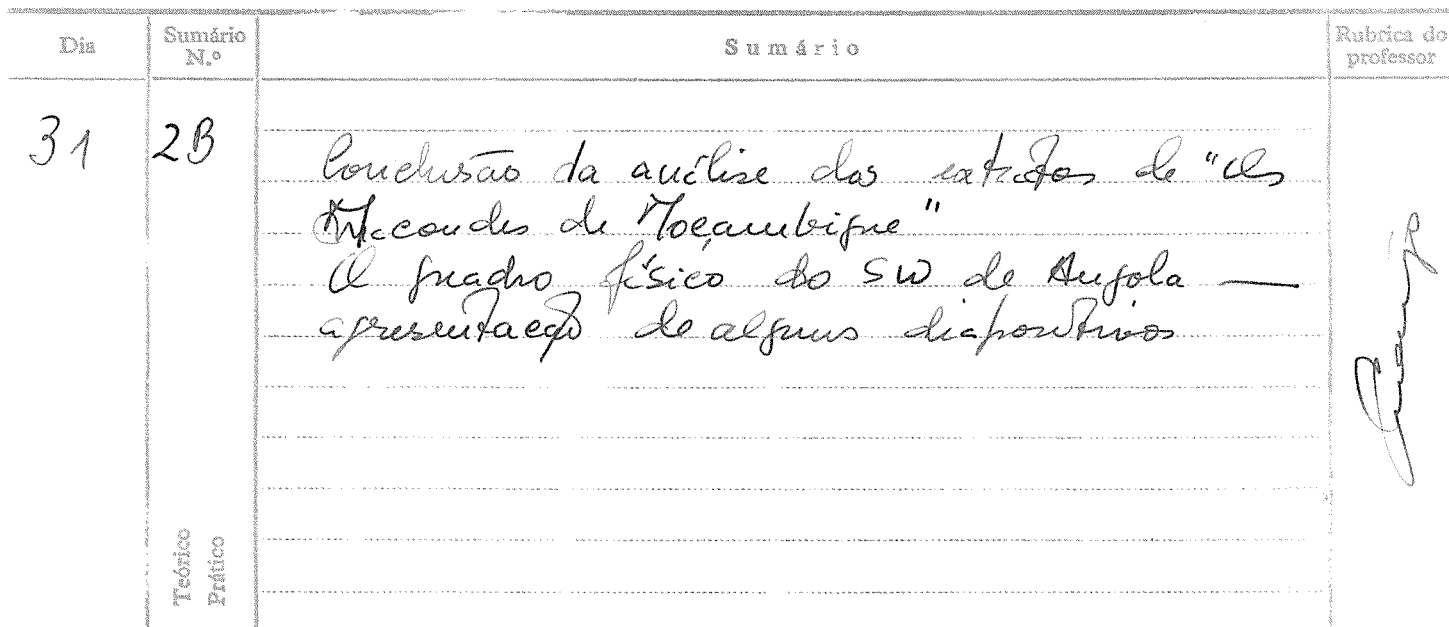 Dia
Sumário N.º
Sumário
Rubrica do professor
31
2B
Conclusão da análise dos extratos de "Os
Macondes de Moçambique"
O quadro físico do SW de Angola —
apresentação de alguns diapositivos
Teórico
Prático